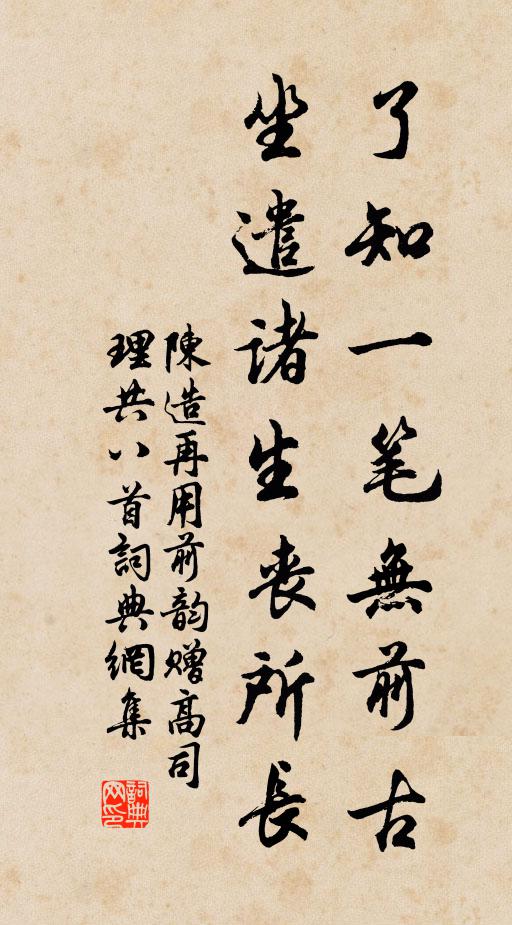 了知一笔無前古
坐遣諸生喪所長
陳造再用前韵贈高司
理共八首詞典網集
詞典
网印